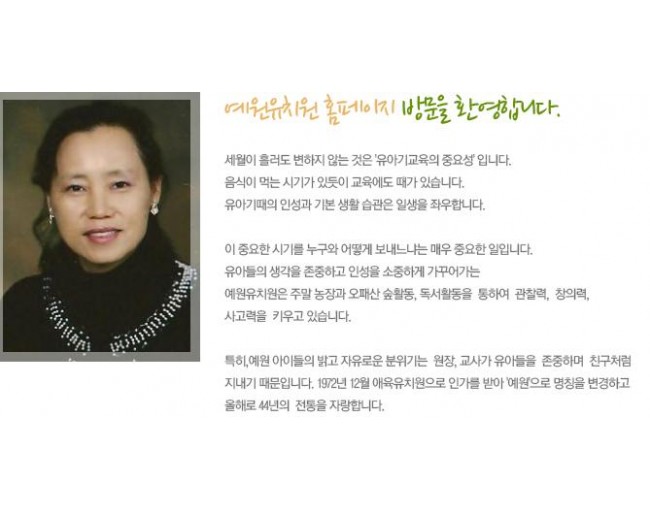 예원유치원 홈페이지 방문을 환영합니다.
세월이 흘러도 변하지 않는 것은 '유아기교육의 중요성' 입니다.
음식이 먹는 시기가 있듯이 교육에도 때가 있습니다.
유아기때의 인성과 기본 생활 습관은 일생을 좌우합니다.
이 중요한 시기를 누구와 어떻게 보내느냐는 매우 중요한 일입니다.
유아들의 생각을 존중하고 인성을 소중하게 가꾸어가는
예원유치원은 주말 농장과 오패산 숲활동, 독서활동을 통하여 관찰력, 창의력,
사고력을 키우고 있습니다.
특히,예원 아이들의 밝고 자유로운 분위기는 원장, 교사가 유아들을 존중하며 친구처럼
지내기 때문입니다. 1972년 12월 애육유치원으로 인가를 받아 '예원'으로 명칭을 변경하고
올해로 44년의 전통을 자랑합니다.